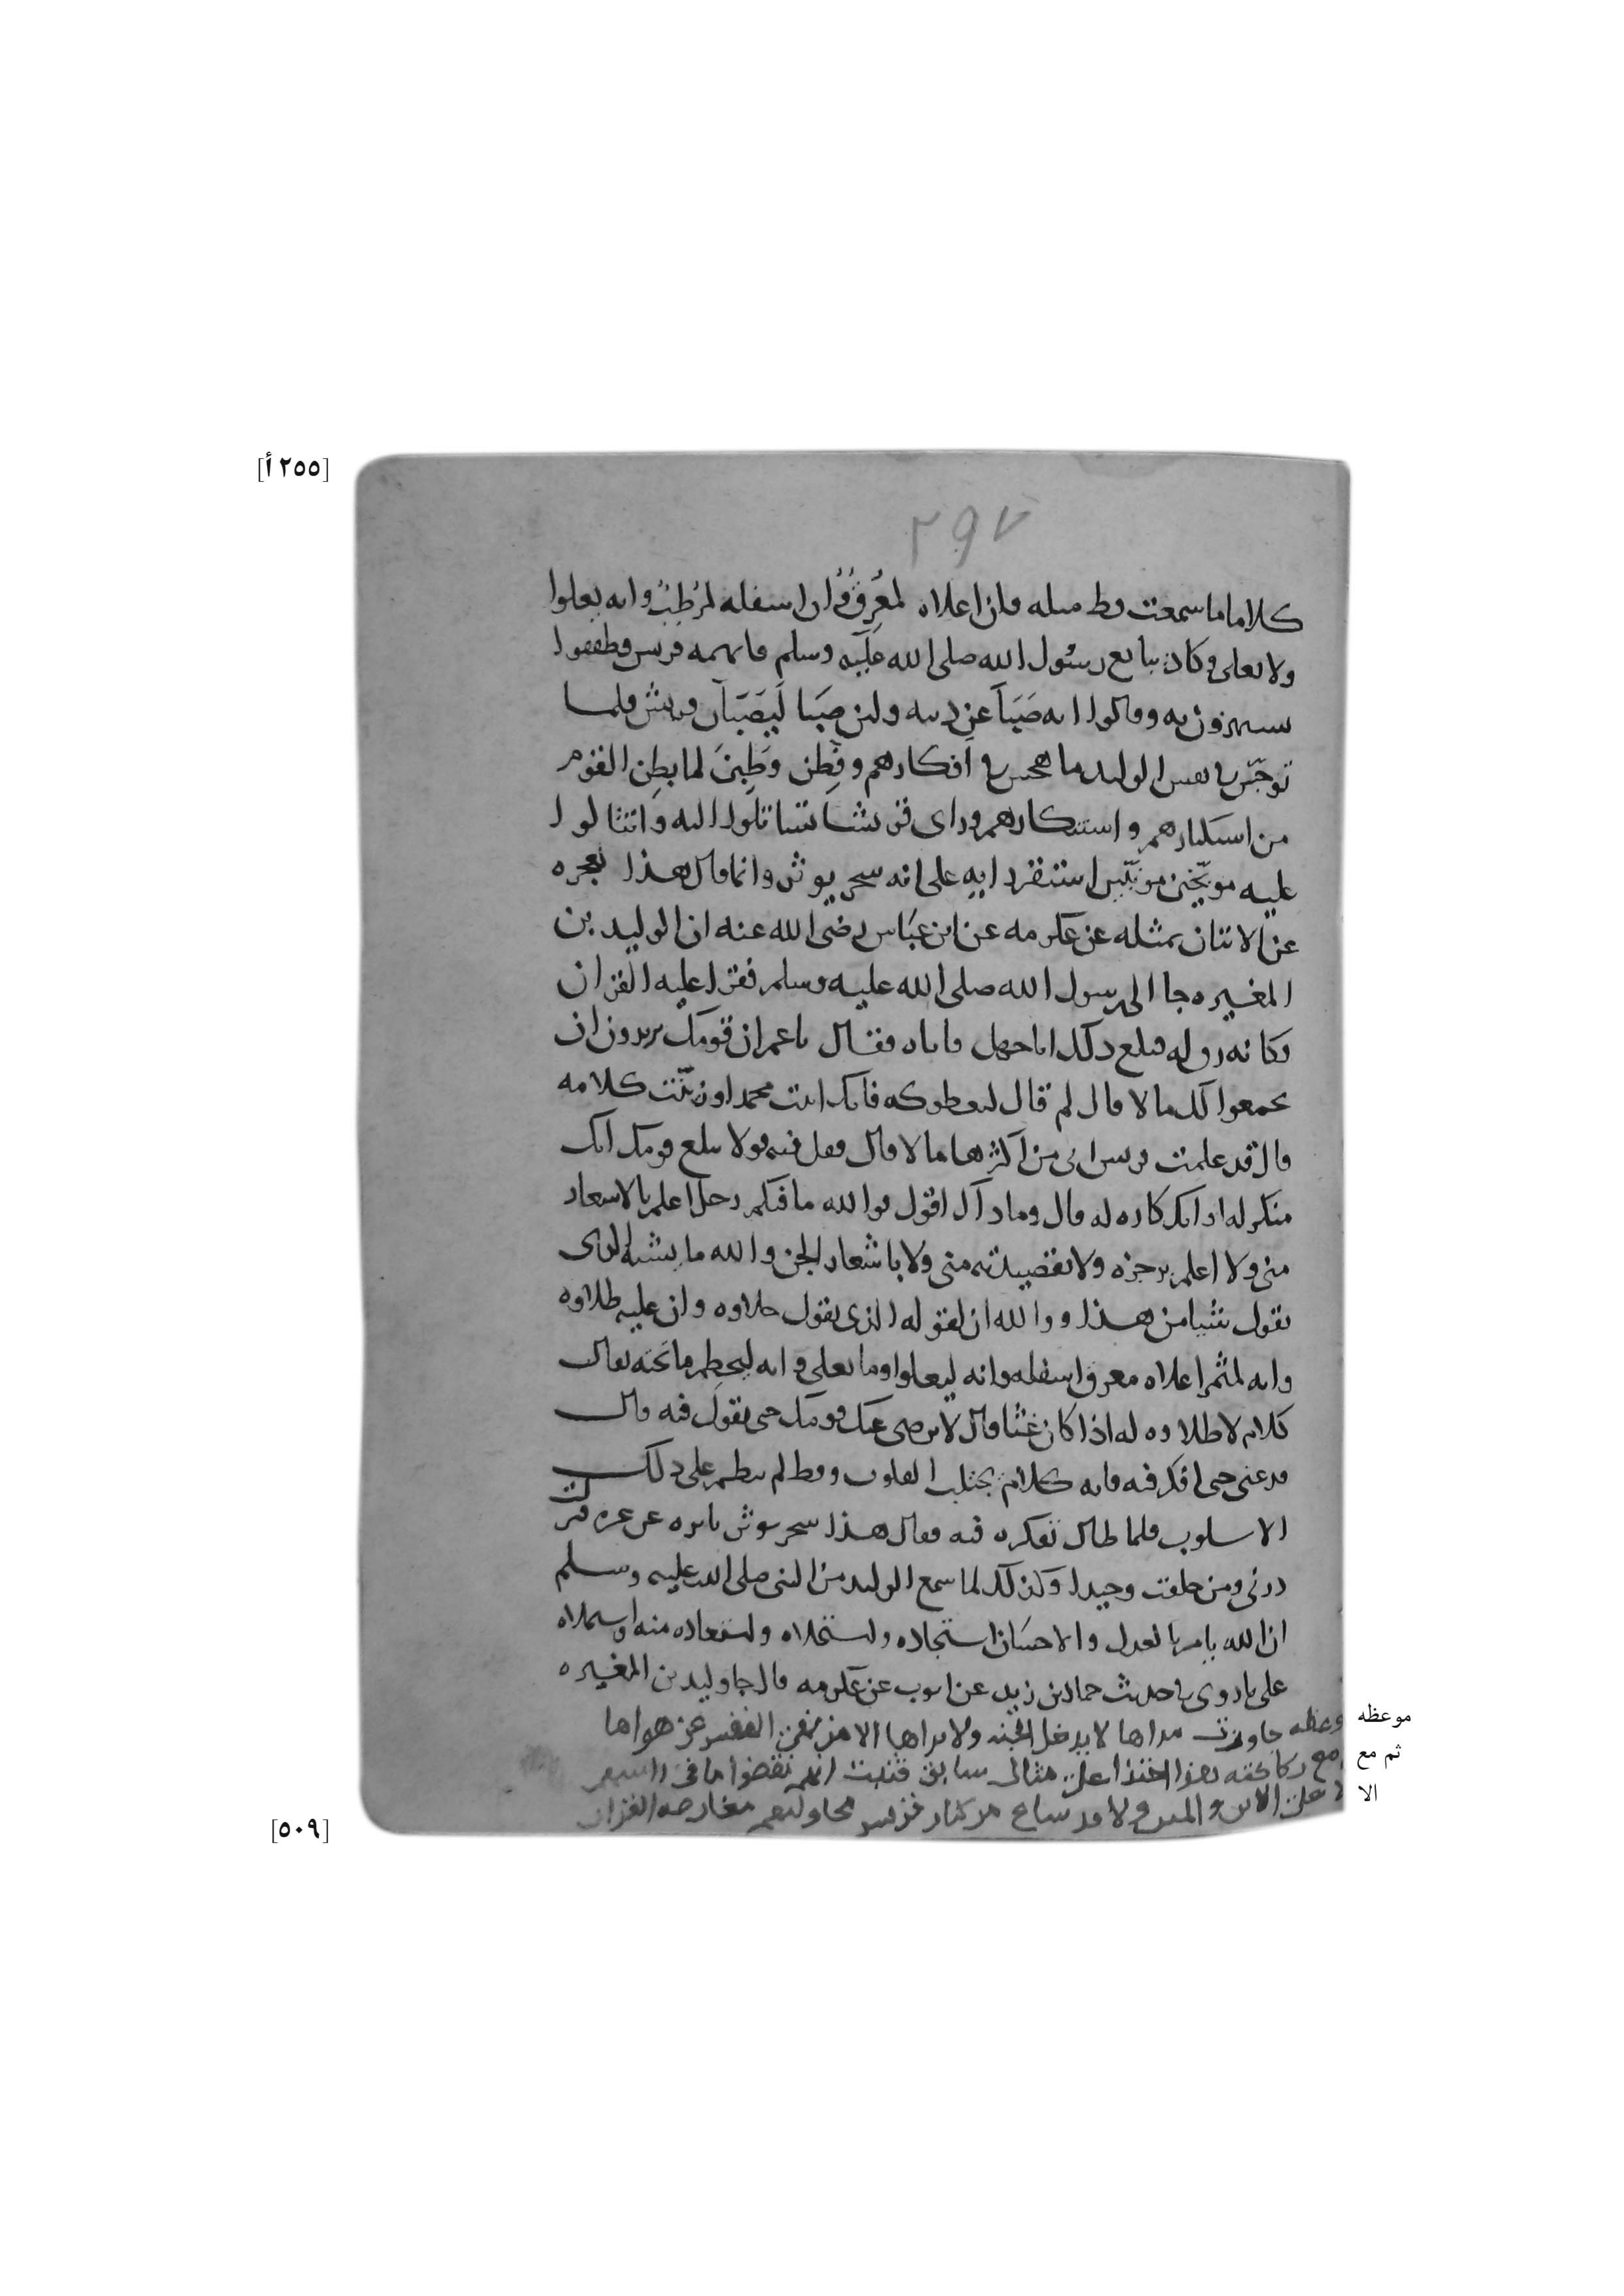 [٢٥٥ أ]
٢٩٧
كلاما ما سمعت قط مثله فان اعلاه لمعرق وان اسفله لمرطب وانه يعلوا
ولا يعلى وكاد يبايع رسول الله صلى الله عليه وسلم فاتهمه قريش وطفقوا
يستهزون به وقالوا انه صبا عن دينه ولئن صبا ليصبان قريش فلما
توجس في نفس الوليد ما هجس في افكارهم وفطن وطبن لما بطن القوم
من استكبارهم واستنكارهم وراى قريشا تتاتلوا اليه وانثالوا
عليه موبخين مونبين استقر رايه على انه سحر يوثر وانما قال هذا لعجزه
عن الاتيان بمثله عن عكرمه عن ابن عباس رضى الله عنه ان الوليد بن
المغيره جا الى رسول الله صلى الله عليه وسلم فقرا عليه القران
فكانه رق له فبلغ ذلك ابا جهل فاتاه فقال يا عم ان قومك يريدون ان
يجمعوا لك مالا قال لم قال ليعطوكه فانك اتيت محمدا وزينت كلامه
قال قد علمت قريش انى من اكثرها مالا قال فقل فيه قولا يبلغ قومك انك
منكر له او انك كاره له قال وماذا اقول فوالله ما فيكم رجل اعلم بالاشعار
منى ولا اعلم برجزه ولا بقصيدته منى ولا باشعار الجن والله ما يشبه الذى
يقول شيا من هذا ووالله ان لقوله الذى يقول حلاوه وان عليه طلاوه
وانه لمثمر اعلاه معرق اسفله وانه ليعلوا وما يعلى وانه ليحطم ما تحته يقال
كلام لا طلاوه له اذا كان غثا قال لا يرضى عنك قومك حتى تقول فيه قال
فدعنى حتى افكر فيه فانه كلام يجتلب القلوب وقط لم ينظم على ذلك
الاسلوب فلما طال تفكره فيه فقال هذا سحر يوثر ياثره عن غيره فنزلت
ذرنى ومن خلقت وحيدا وكذلك لما سمع الوليد من النبى صلى الله عليه وسلم
ان الله يامر بالعدل والاحسان استجاده واستحلاه واستعاده منه واستملاه
على ما روى في حديث حماد بن زيد عن ايوب عن عكرمه قال جا وليد بن المغيره
موعظه جاوزت مداها لا يدخل الجنه ولا يراها الا من نهى النفس عن هواها موعظه
مع ركاكته هذا اخذا على مثال سابق ثم مع
الا على الاين والمين ولا قد ساع من كبار قريش محاولتهم معارضه القران الا
[٥٠٩]